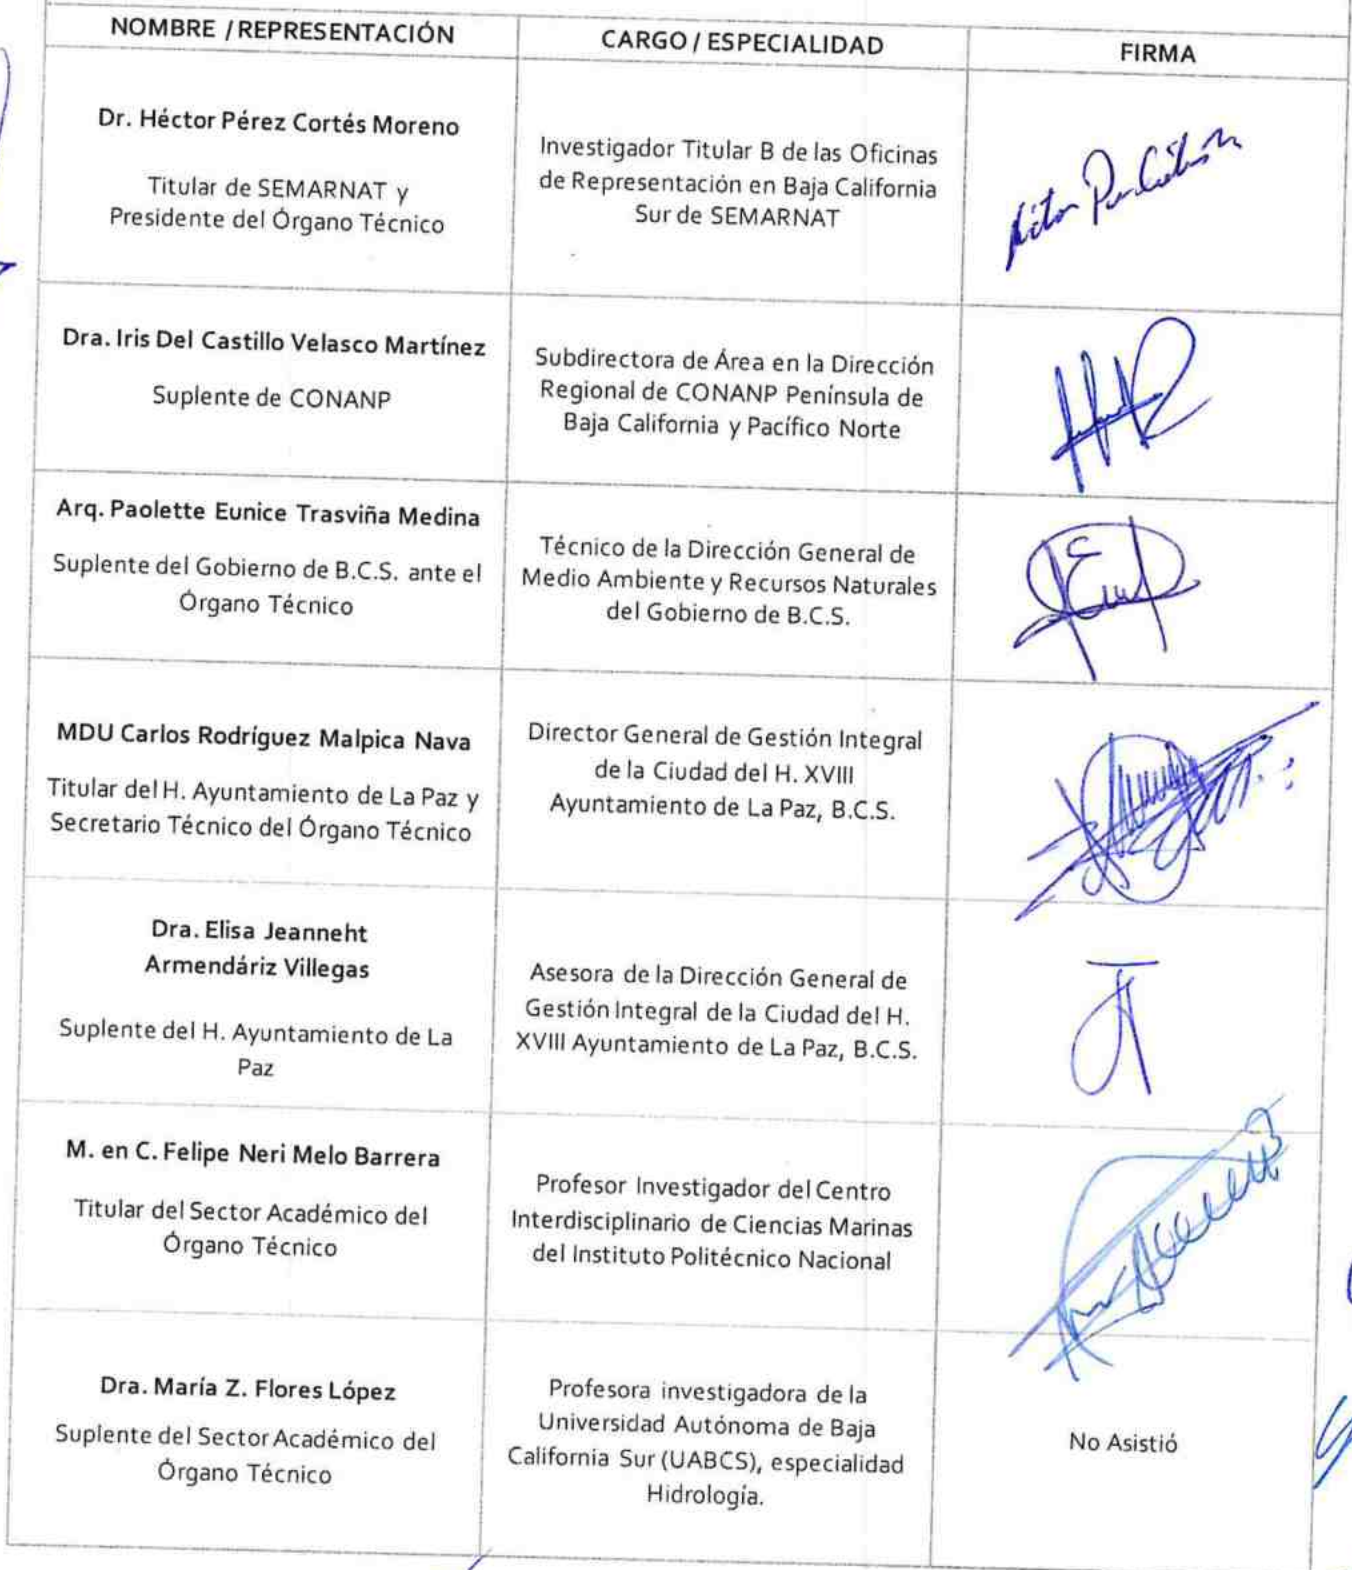 NOMBRE / REPRESENTACIÓN
CARGO / ESPECIALIDAD
FIRMA
Dr. Héctor Pérez Cortés Moreno
Titular de SEMARNAT y
Presidente del Órgano Técnico
Investigador Titular B de las Oficinas
de Representación en Baja California
Sur de SEMARNAT
Dra. Iris Del Castillo Velasco Martínez
Suplente de CONANP
Subdirectora de Área en la Dirección
Regional de CONANP Península de
Baja California y Pacífico Norte
Arq. Paolette Eunice Trasviña Medina
Suplente del Gobierno de B.C.S. ante el
Órgano Técnico
Técnico de la Dirección General de
Medio Ambiente y Recursos Naturales
del Gobierno de B.C.S.
MDU Carlos Rodríguez Malpica Nava
Titular del H. Ayuntamiento de La Paz y
Secretario Técnico del Órgano Técnico
Director General de Gestión Integral
de la Ciudad del H. XVIII
Ayuntamiento de La Paz, B.C.S.
Dra. Elisa Jeanneht
Armendáriz Villegas
Suplente del H. Ayuntamiento de La
Paz
Asesora de la Dirección General de
Gestión Integral de la Ciudad del H.
XVIII Ayuntamiento de La Paz, B.C.S.
M. en C. Felipe Neri Melo Barrera
Titular del Sector Académico del
Órgano Técnico
Profesor Investigador del Centro
Interdisciplinario de Ciencias Marinas
del Instituto Politécnico Nacional
Dra. María Z. Flores López
Suplente del Sector Académico del
Órgano Técnico
Profesora investigadora de la
Universidad Autónoma de Baja
California Sur (UABCS), especialidad
Hidrología.
No Asistió